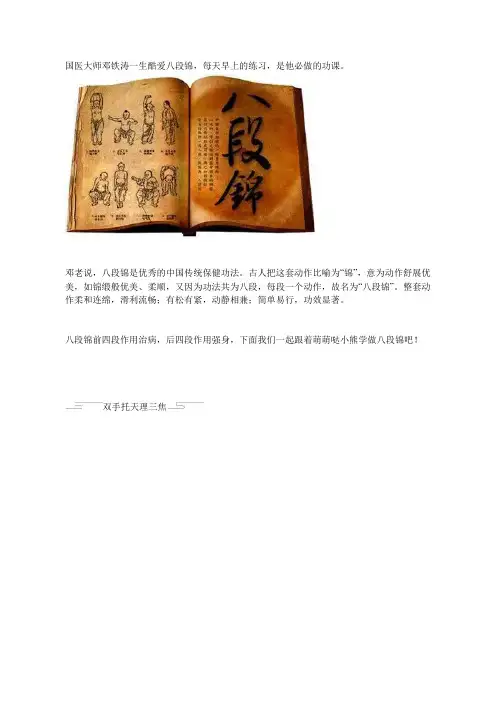 国医大师邓铁涛一生酷爱八段锦，每天早上的练习，是他必做的功课。
八段錦
邓老说，八段锦是优秀的中国传统保健功法。古人把这套动作比喻为“锦”，意为动作舒展优
美，如锦缎般优美、柔顺，又因为功法共为八段，每段一个动作，故名为“八段锦”。整套动
作柔和连绵，滑利流畅；有松有紧，动静相兼；简单易行，功效显著。
八段锦前四段作用治病，后四段作用强身，下面我们一起跟着萌萌哒小熊学做八段锦吧！
双手托天理三焦